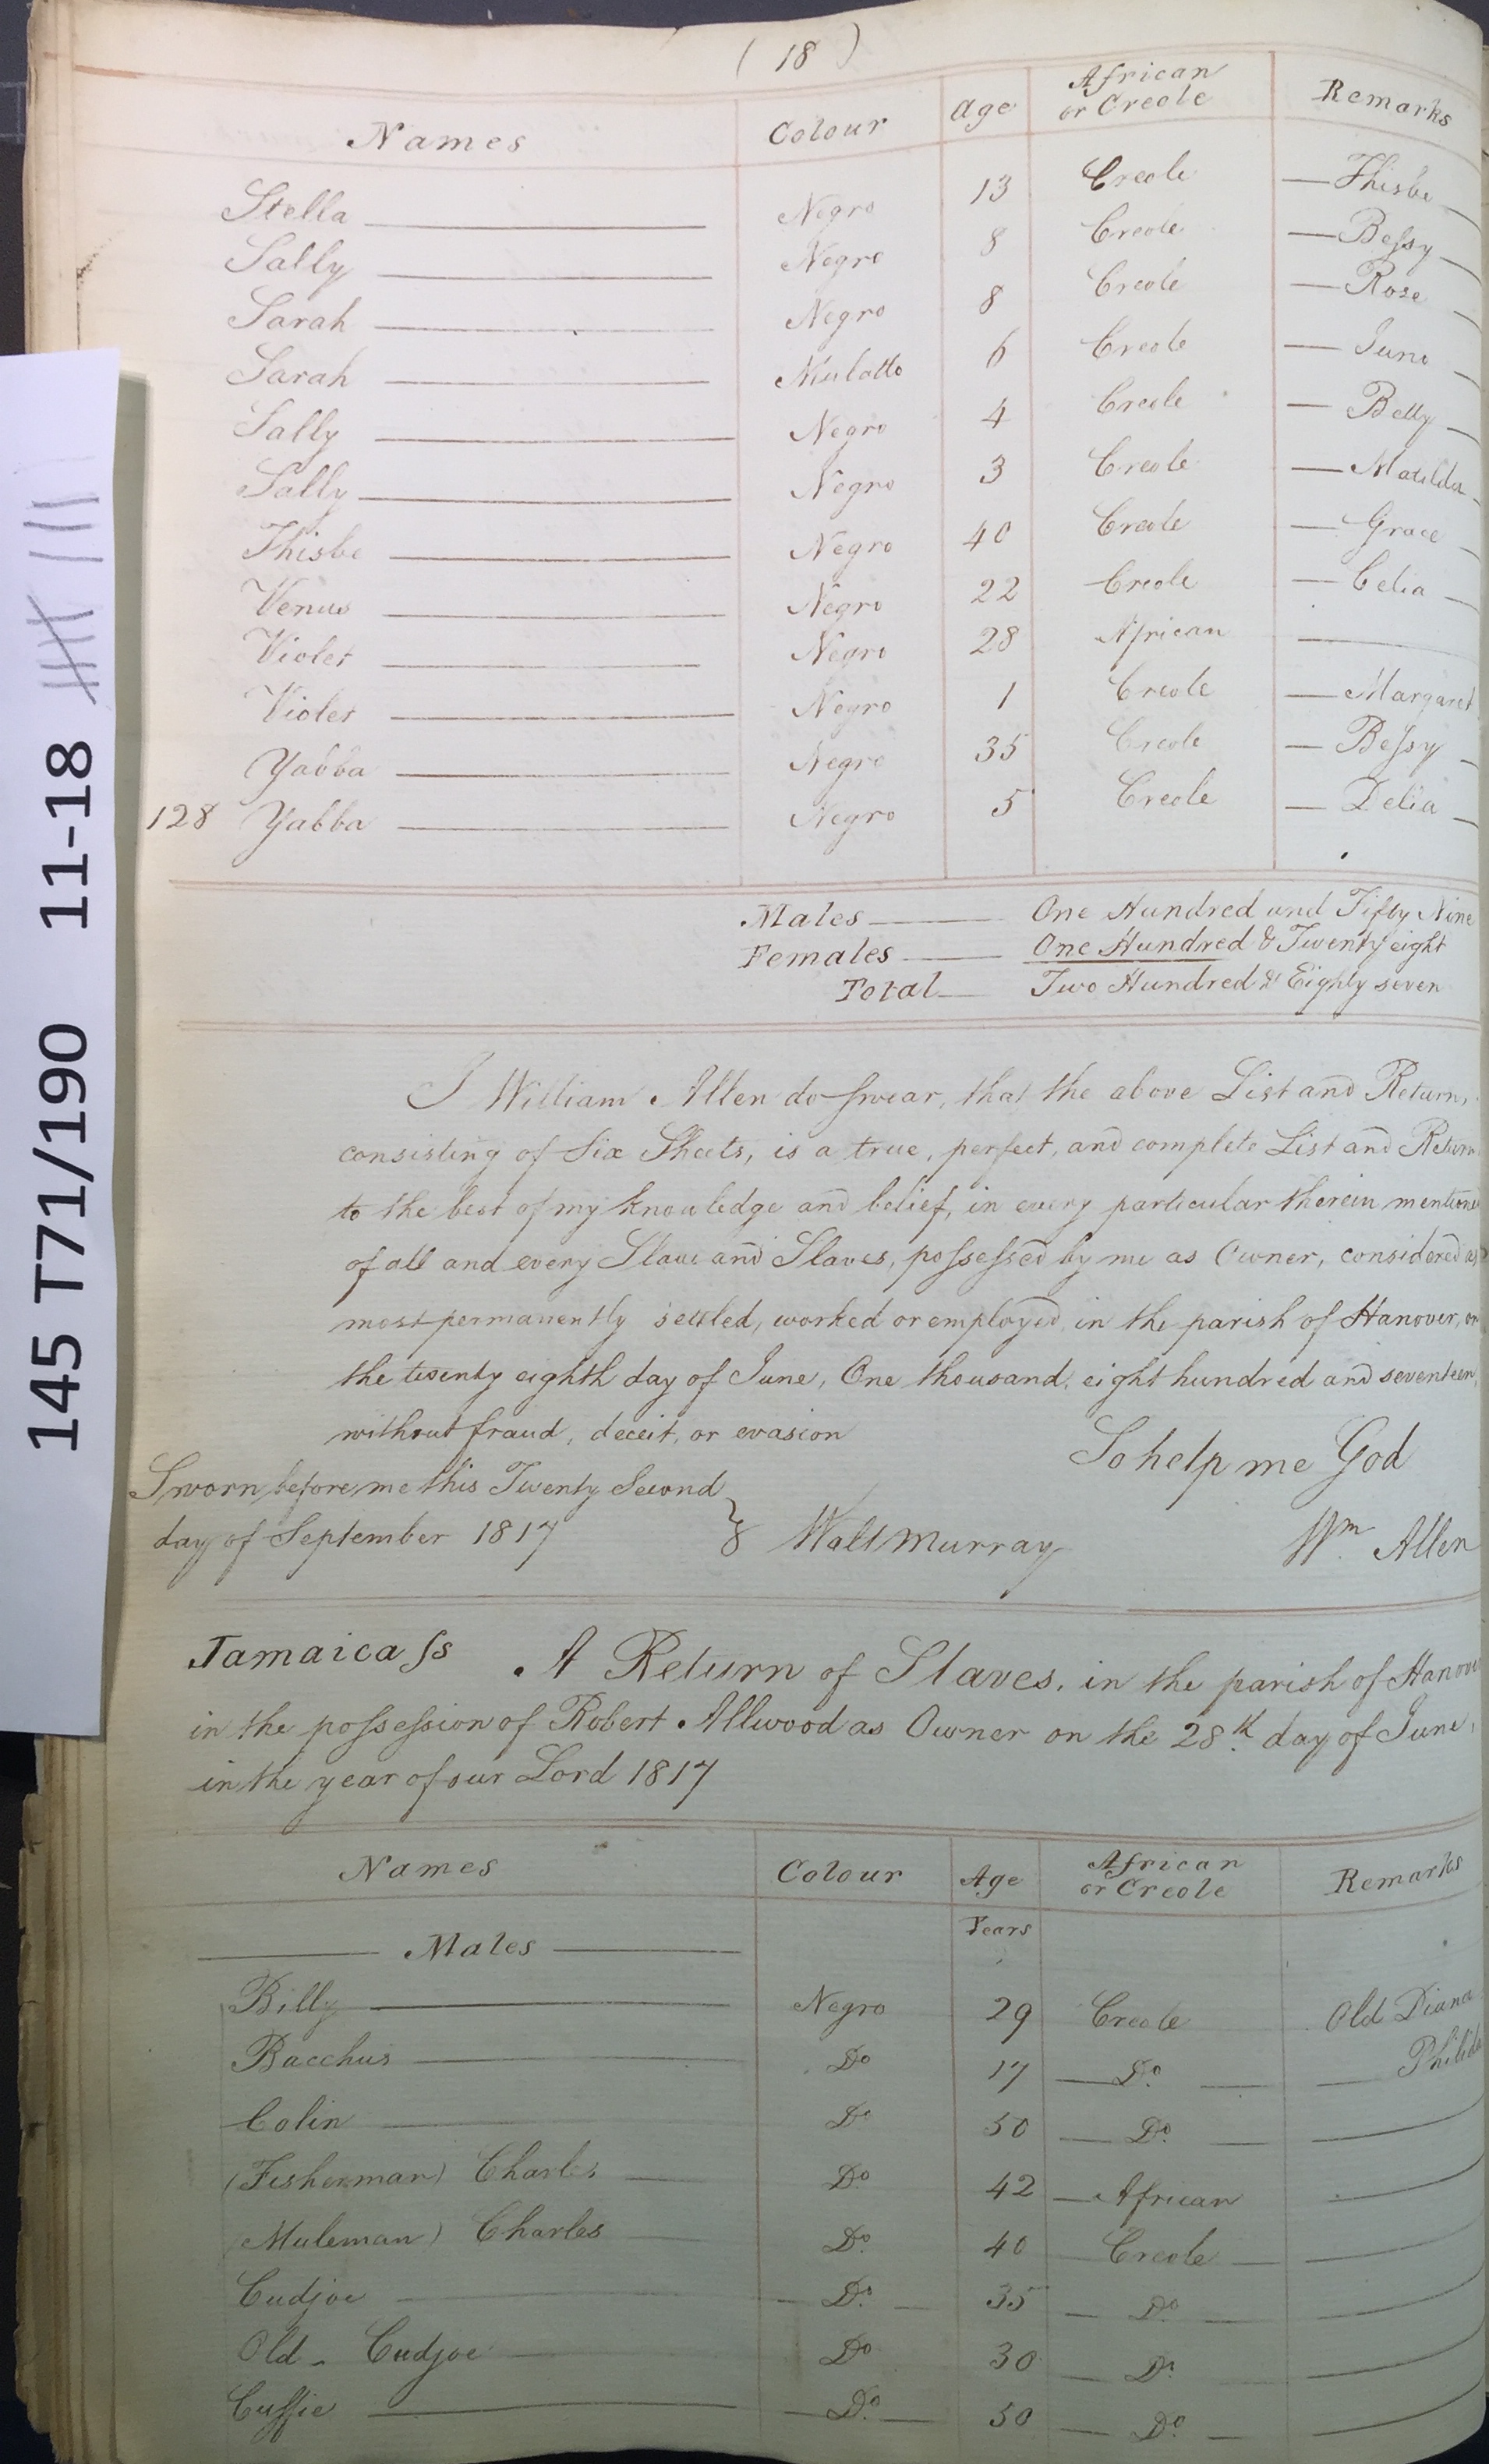 ( 18 )
Names Colour Age African or Creole Remarks
Stella Negro 13 Creole Thisbe
Sally Negro 8 Creole Beſsy
Sarah Negro 8 Creole Rose
Sarah Mulatto 6 Creole Juno
Sally Negro 4 Creole Betty
Sally Negro 3 Creole Matilda
Thisbe Negro 40 Creole Grace
Venus Negro 22 Creole Celia
Violet Negro 28 African
Violet Negro 1 Creole Margaret
Yabba Negro 35 Creole Beſsy
128 Yabba Negro 5 Creole Delia
Males One Hundred and Fifty Nine
Females One Hundred & Twenty eight
Total Two Hundred & Eighty seven
I William Allen do swear, that the above List and Return,
consisting of Six Sheets, is a true, perfect, and complete List and Return
to the best of my knowledge and belief, in every particular therein mentioned
of all and every Slave and Slaves, poſseſsed by me as Owner, considered as
most permanently settled, worked or employed, in the parish of Hanover, on
the twenty eighth day of June, One thousand, eight hundred and seventeen,
without fraud, deceit, or evasion
So help me God
Sworn before me this Twenty Second
day of September 1817 Walt Murray Wm Allen
Jamaica ſs A Return of Slaves, in the parish of Hanover
in the poſseſsion of Robert Allwood as Owner on the 28th day of June,
in the year of our Lord 1817
Names Colour Age African or Creole Remarks
Years
Males
Billy Negro 29 Creole Old Diana
Bacchus Do 17 Do Philida
Colin Do 50 Do
(Fisherman) Charles Do 42 African
(Muleman) Charles Do 40 Creole
Cudjoe Do 35 Do
Old Cudjoe Do 30 Do
Cuffie Do 50 Do
145 T71/190 11-18